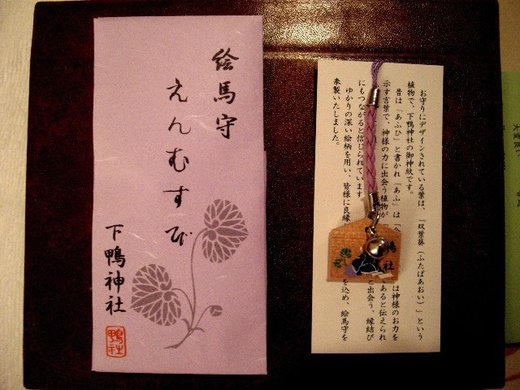 絵馬守
えんむすび
下鴨神社
鴨社
お守りにデザインされている葉は、「双葉葵(ふたばあおい)」という
植物で、下鴨神社の御神紋です。
昔は「あふひ」と書かれ「あふ」は「
は神様のお力を
示す言葉で、神様の力に出会う植物が
あると伝えられ
にもつながると信じられています
と出会う、縁結び
ゆかりの深い絵柄を用い、皆様に良縁
を込め、絵馬守を
奉製いたしました。
鴨社